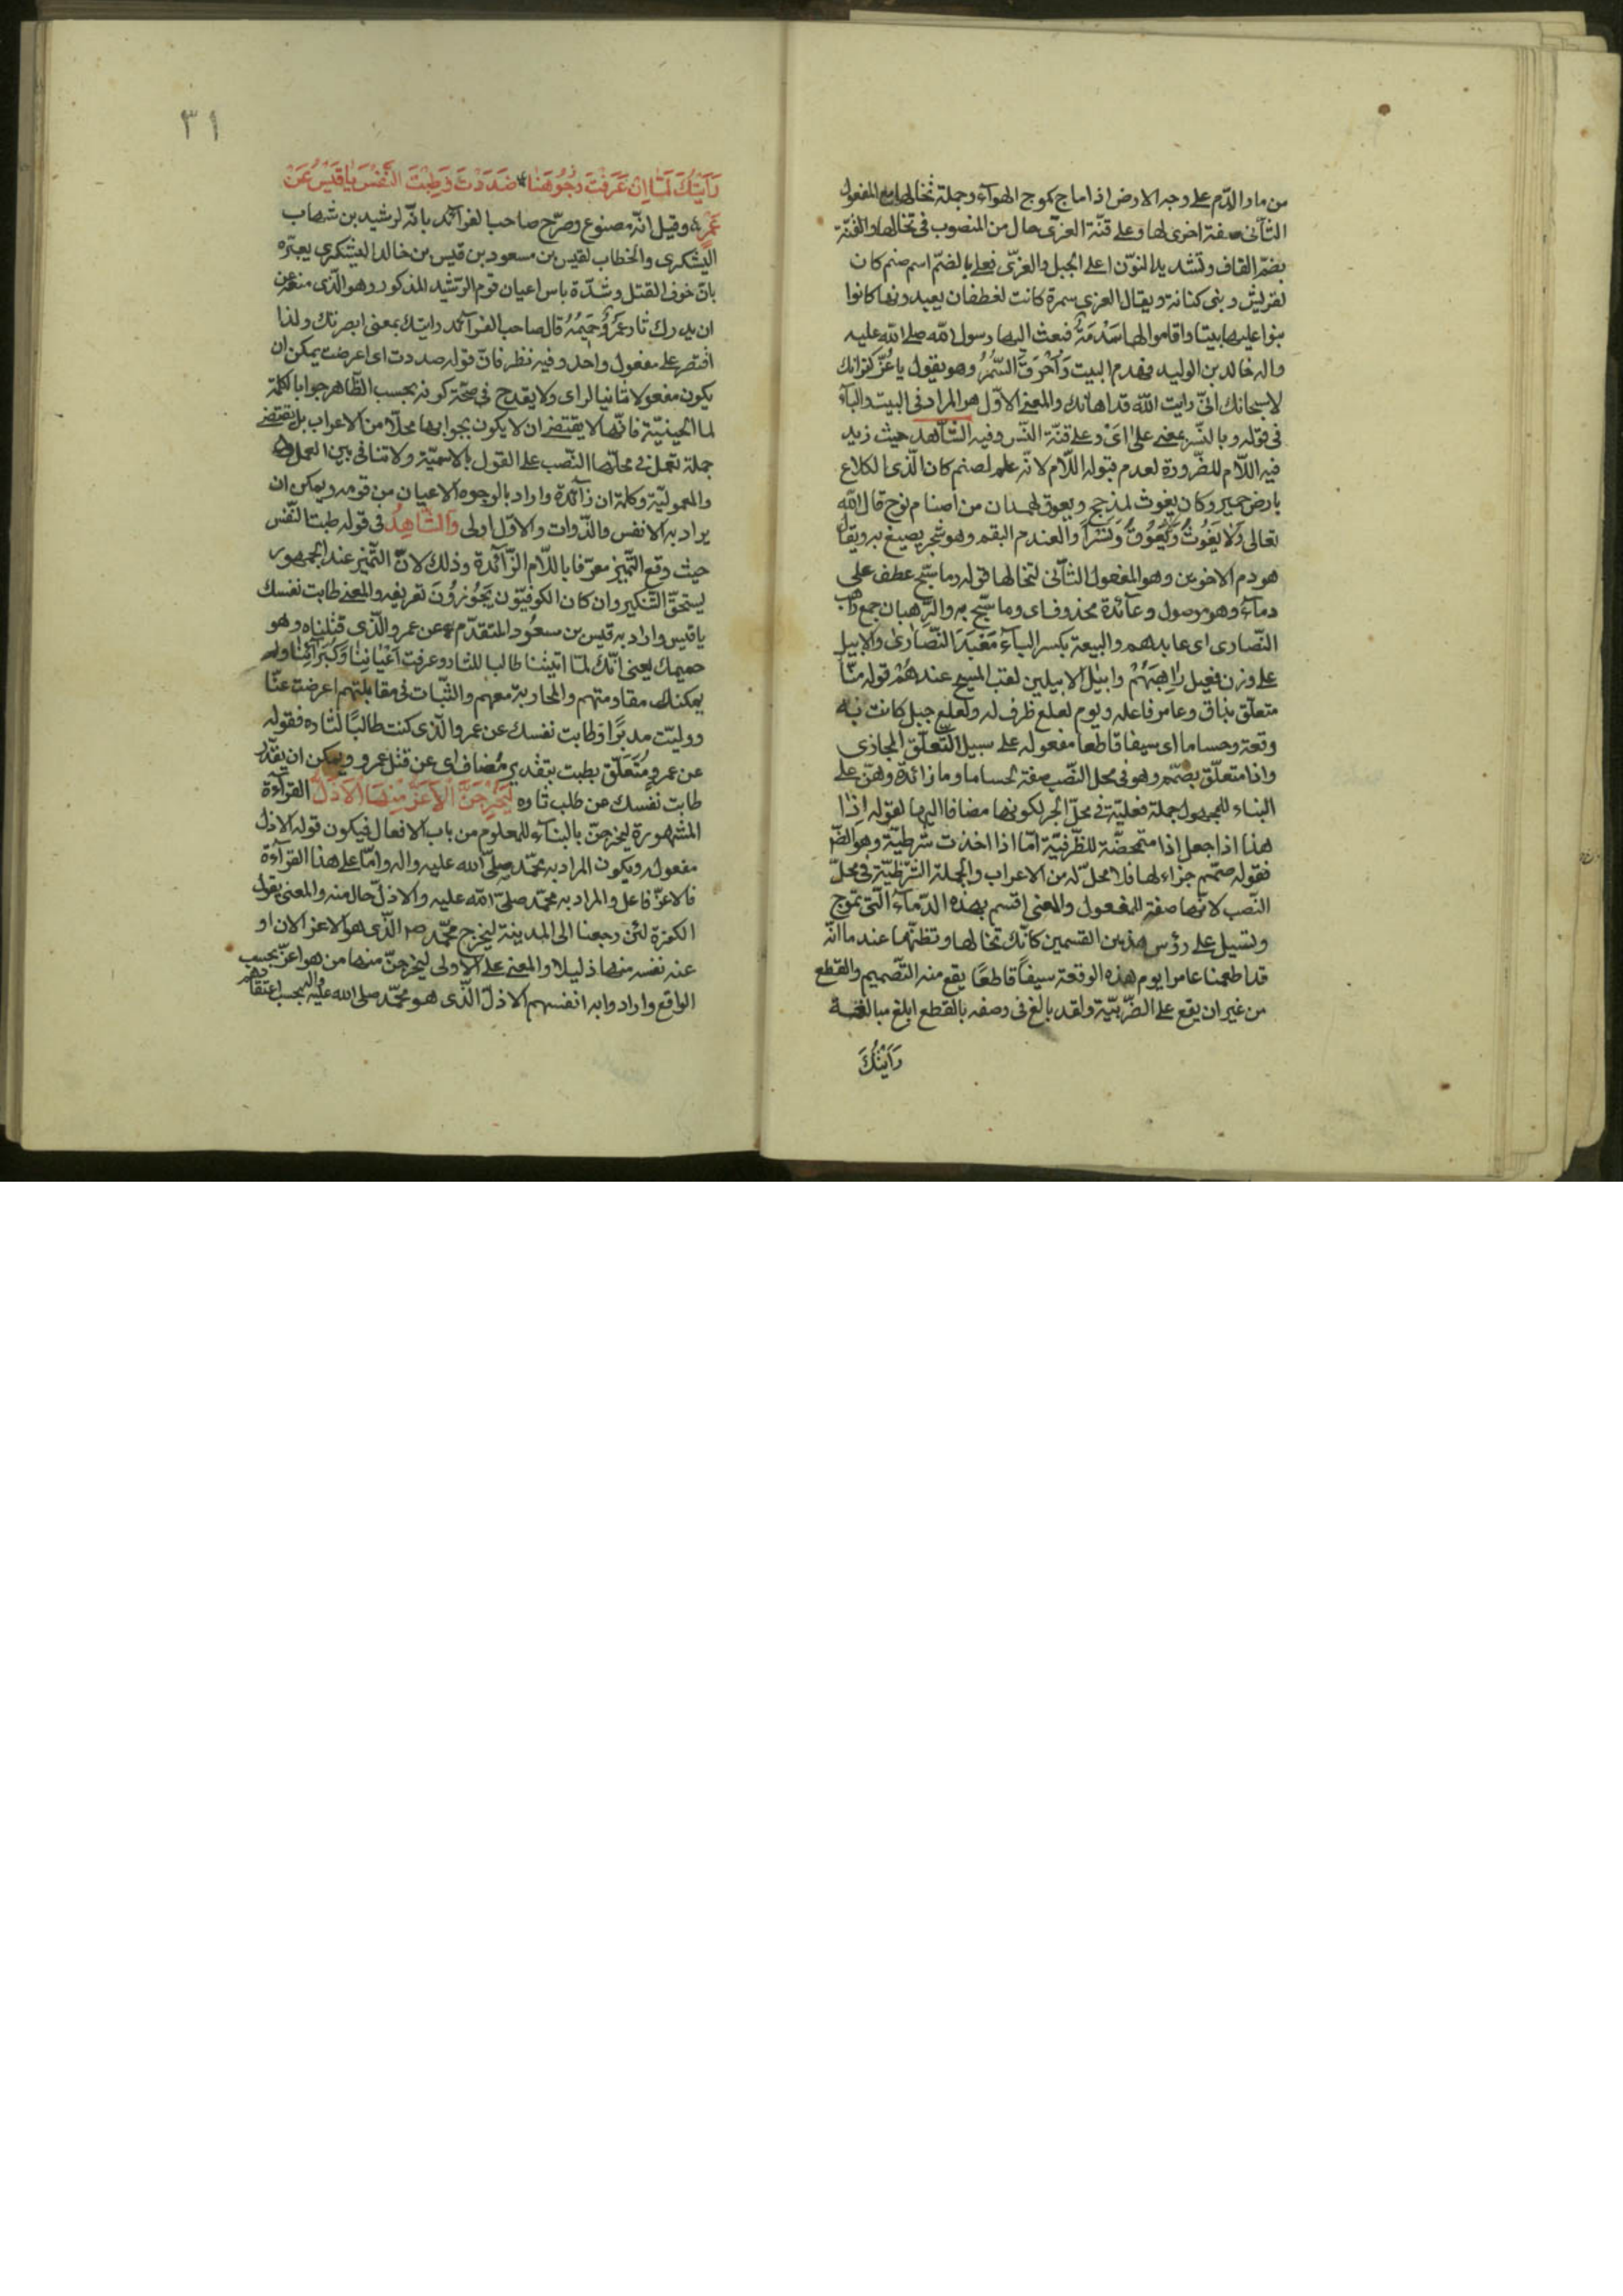 من مار الدّم على وجه الارض اذا ماج كموج الهوآء وجملة تخالها مع المفعول
الثّآنى صفة اخرى لها وعلى قنّة العزّى حال من المنصوب فى تخالها والقنّة
بضمّ القاف وتشديد النوّن اعلى الجبل والعزّى فعلى بالضمّ اسم صنم كان
لقريش وبنى كنانة ويقال العزى سمرة كانت لغطفان يعبدونها كانوا
بنوا عليها بيتا واقاموا لها سَدَمَةً فبعث اليها رسول اللّه صلى اللّه عليه
واله خالد بن الوليد فهدم البيت وَاَحْرَقَ السَّمُرَ وهو يقول يا عُزّ كفرانك
لا سبحانك انّى رايت اللّه قد اهانك والمعنى الاوّل هو المراد فى البيت والبآء
فى قوله وبالنّسر بمعنى على اىْ وعلى قنّة النّسر وفيه الشّاهد حيث زيد
فيه اللّام للضّرورة لعدم قبوله اللّام لانّه علم لصنم كان لذى الكلاع
بارض حمير وكان يغوث لمذحج ويعوق لهمدان من اصنام نوح قال اللّه
تعالى وَلَا يَغُوثَ وَيَعُوقَ وَنَسْرًا والعندم البقم وهو شجر يصبغ به ويقال
هو دم الاخوين وهو المفعول الثّآنى لتخالها قوله وما سبّح عطف على
دمآء وهو موصول وعآئدة محذوف اى وما سبّح به والرّهبان جمع راهب
النّصارى اى عابدهم والبيعة بكسر البآء مَعْبَدَ النّصَارىٰ والابيل
على وزن فعيل رَاهِبَهُمْ وابيل الابيلين لقب المسيح عندهُمْ قوله منّا
متعلّق بذاق وعامر فاعله ويوم لعلع ظرف له ولعلع جبل كانت به
وقعة وحساما اى سيفا قاطعا مفعوله على سبيل التّعلّق المجازى
واذا متعلّق بصمّم وهو فى محل النّصب صفة لحساما وما زائدة وهزّ على
البناء للمجهول جملة فعليّة فى محلّ الجر لكونها مضافا اليها لقوله اِذٰا
هذا اذا جعل اذا متمحضّة للظّرفيّة امّا اذا اخذت شرطيّة وهو الظّ
فقوله صمّم جزاء لها فلا محلّ له من الاعراب والجملة الشّرطيّة فى محلّ
النّصب لانّها صفة للمفعول والمعنى اقسم بهذه الدّمآء الّتى تموج
وتسيل على رؤس هذين القسمين كانّك تخالها وتظنّها عندما انّه
قد اطعمنا عامرا يوم هذه الوقعة سيفًا قاطعًا يقع منه التّصميم والقطع
من غير ان يقع على الضّربيّة ولقد بالغ فى وصفه بالقطع ابلغ مبالغة
رَاَيْتُكَ
٣١
رَاَيْتُكَ لَمّٰا اِنْ عَرَفْتَ وُجُوهَنٰا صَدَدْتَ وَطِبْتَ النَّفْسَ يٰا قَيْسُ عَنْ
عَمْرٍو وقيل انّه مصنوع وصرّح صاحب الفرآئد بانّه لرشيد بن شهاب
اليشكرى والخطاب لقيس بن مسعود بن قيس بن خالد اليشكرى يعيّره
بان خوف القتل وشدّة باس اعيان قوم الرّشيد المذكور وهو الّذى منعه عن
ان يدرك ثار عَمْرٍو حَمِيْمُهُ قال صاحب الفرآئد رايتك بمعنى ابصرتك ولذا
اقتصر على مفعول واحد وفيه نظر فانّ قوله صددت اى اعرضت يمكن ان
يكون مفعولا ثانيا لراى ولا يقدح فى صحّة كونه بحسب الظّاهر جوابا لكلمة
لما الحينيّة فانّها لا يقتضى ان لا يكون بجوابها محلّا من الاعراب بل يقتضى
جملة تعمل فى محلّها النّصب على القول بالاسميّة ولا تنافى بين العمل
والمعموليّة وكلمة ان زآئدة واراد بالوجوه الاعيان من قومه ويمكن ان
يراد به الانفس والذّوات والاوّل اولى وَالشّٰاهِدُ فى قوله طبت النّفس
حيث وقع التّميز معرّفا باللّام الزّآئدة وذلك لانّ التّميز عند الجمهور
يستحقّ التّنكير وان كان الكوفيّون يَجَوُزوُنَ تعريفه والمعنى طابت نفسك
يا قيس واراد به قيس بن مسعُود المتقدّم عن عمرو الّذى قتلناه وهو
حميمك يعنى انّك لمّا اتيتنا طالبا للثار وعرفت اَعْيٰانِنٰا وَكُبَرَآئِنٰا ولم
يمكنك مقاومتهم والمحاربة معهم والثّبات فى مقابلتهم اعرضت عنّا
ووليّت مدبرًا وطابت نفسك عن عمرو الّذى كنت طالبًا لثاره فقوله
عن عمرو مُتَعَلّق بطبت بتقدير مُضاف اى عن قتل عمرو ويمكن ان يقدّر
طابت نفسك عن طلب ثاره لَيَخْرُجَنَّ الْاَعَزُّ مِنْهَا الْاَذَلَّ القرآءة
المشهورة ليخرجنّ بالبنآء للمعلوم من باب الافعال فيكون قوله الاذل
مفعوله ويكون المراد به محمّد صلى اللّه عليه واله وامّا على هذا القرآءة
فالاعزّ فاعل والمراد به محمّد صلّى اللّه عليه والاذلّ حال منه والمعنى يقول
الكفرة لئن رجعنا الى المدينة ليخرج محمّد ص الّذى هو الاعز الان او
عند نفسه منها ذليلا والمعنى على الاولى ليخرجنّ منها من هو اعزّ بحسب
الواقع وارادوا به انفسهم الاذلّ الّذى هو محمّد صلى اللّه عليه واله بحسب اعتقادهم